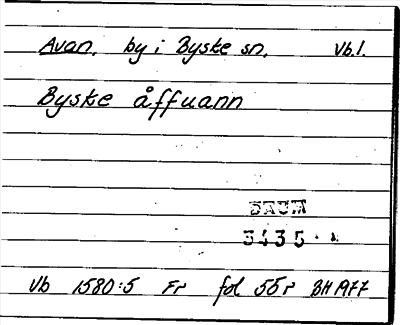 Avan, by i Byske sn. Vb.l.
Byske åffuann
DAUM
3435
Vb 1580:5 Fr fol 55r BH 1977